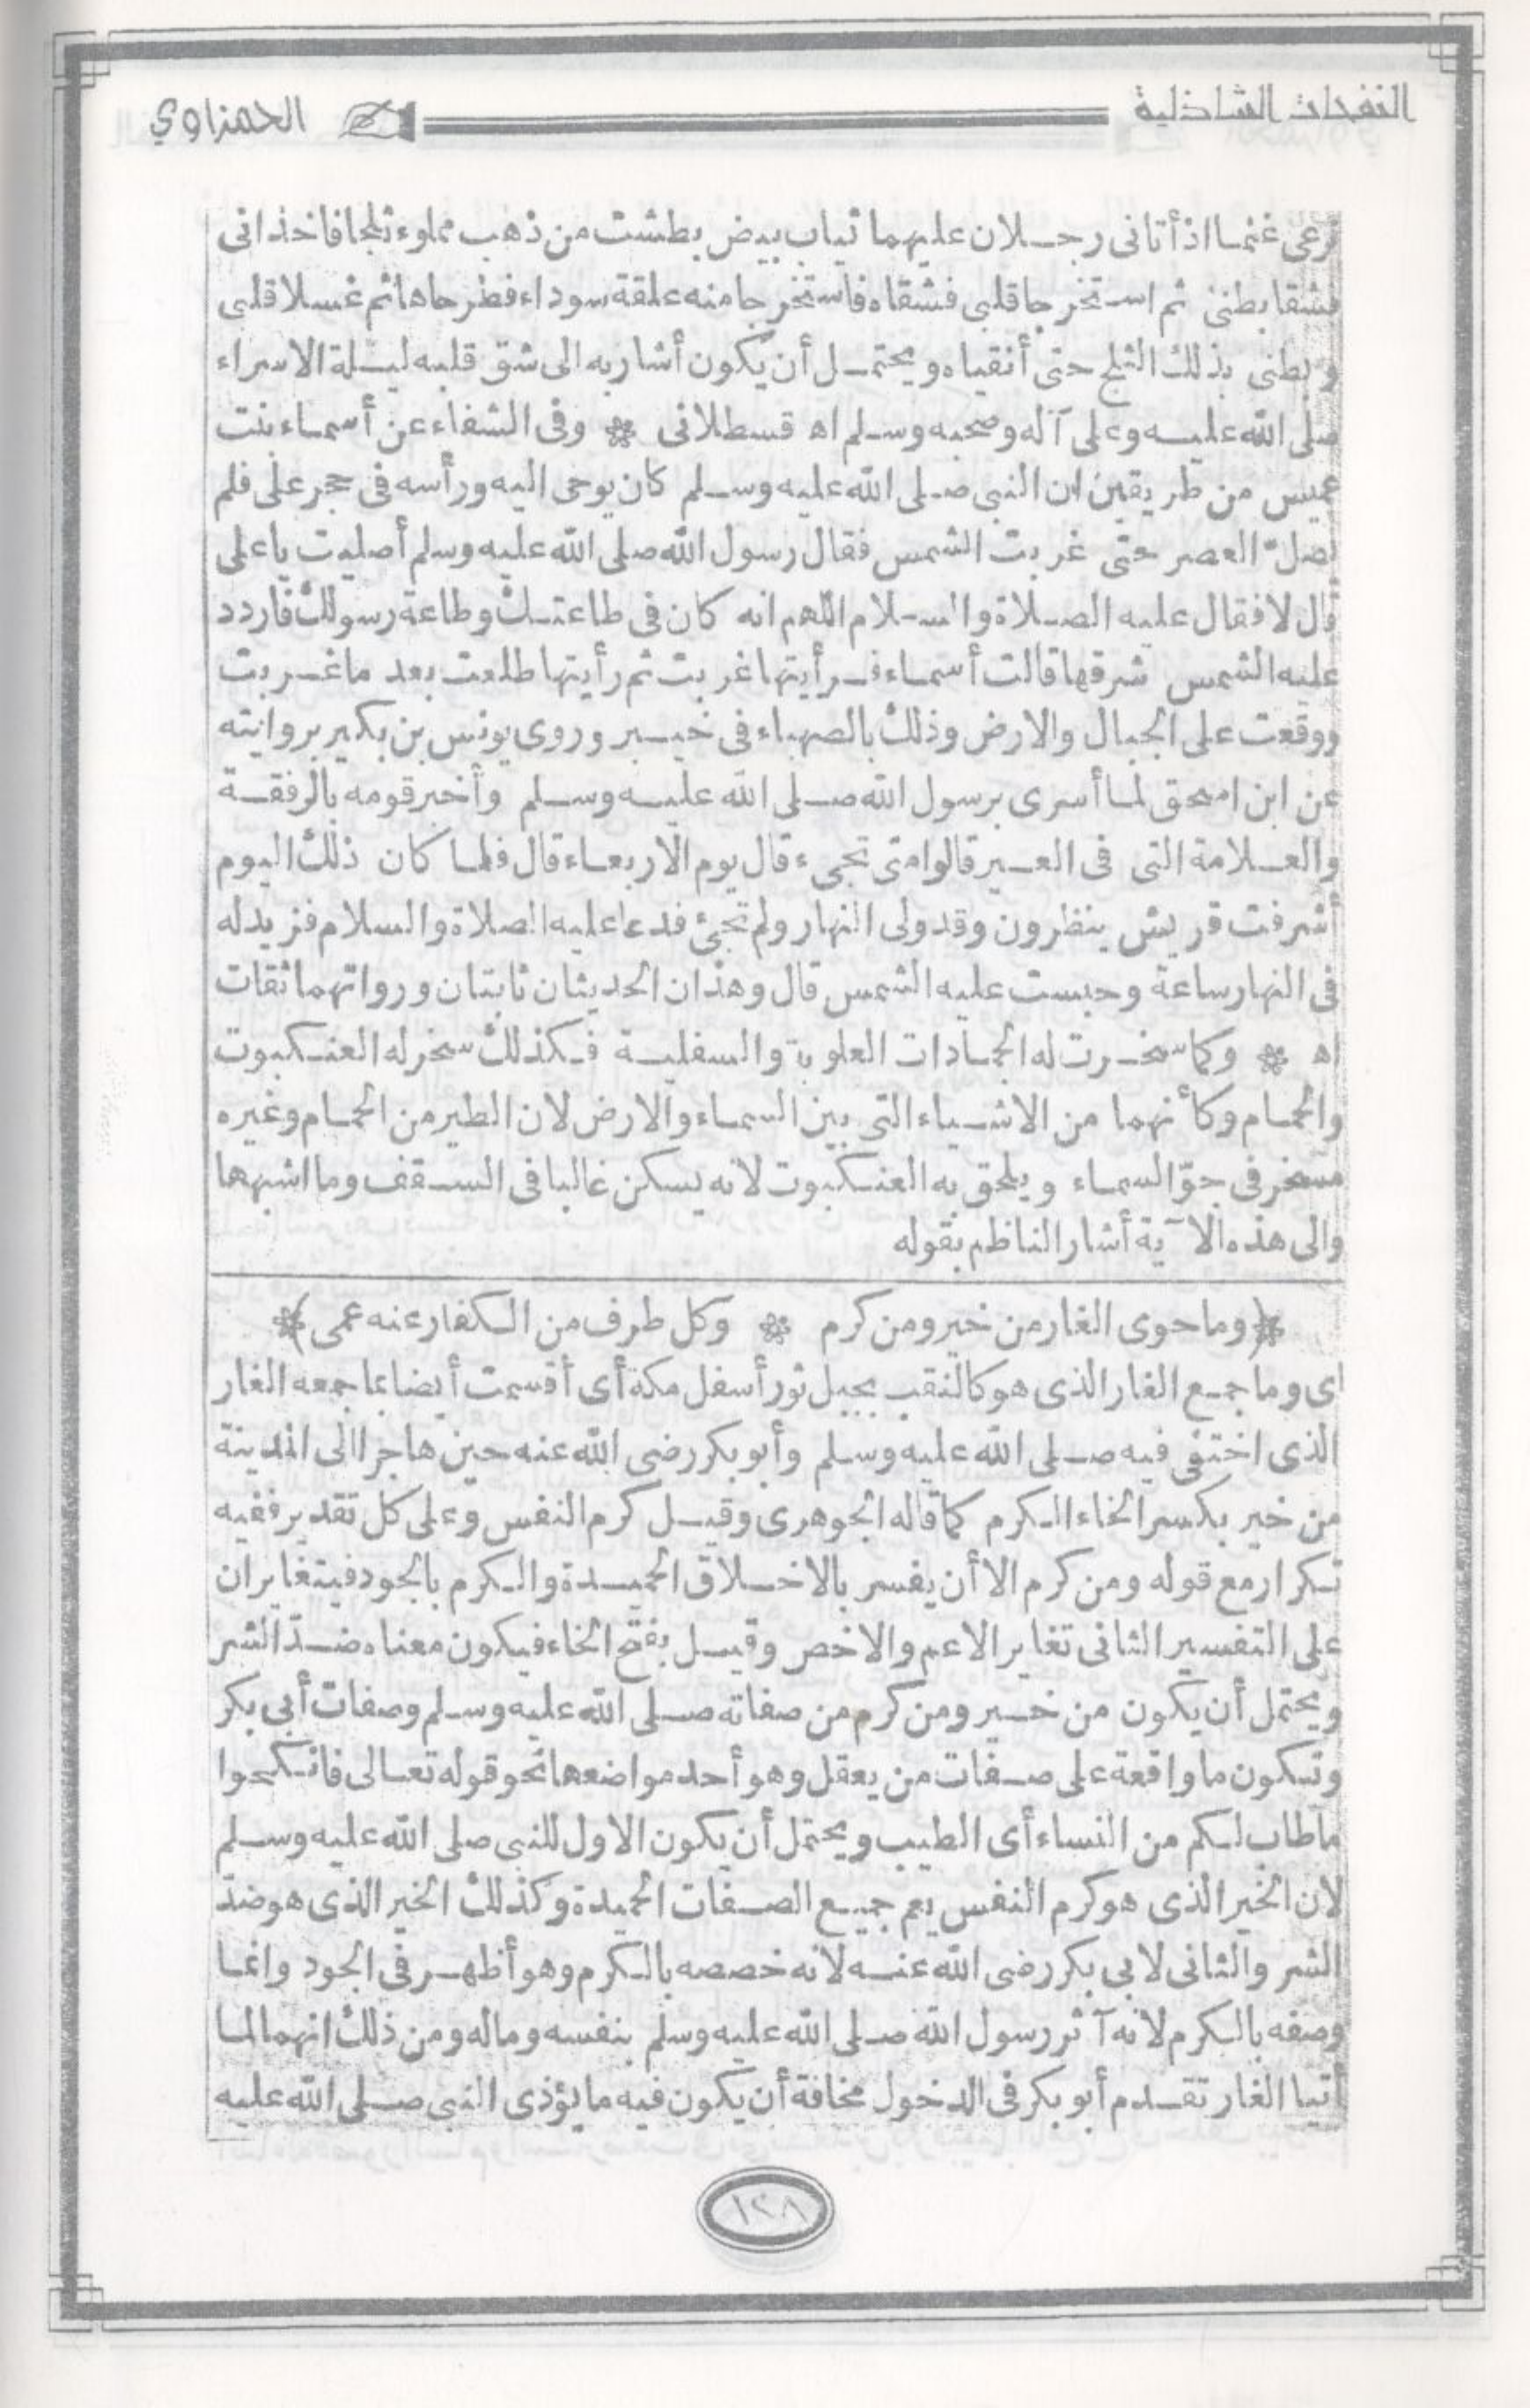 النفحات الشاذلية
الحمزاوي
نرعى غنما اذ أتانى رجلان عليهما ثياب بيض بطشت من ذهب مملوء ثلجا فاخذانى
فشقا بطنى ثم استخرجا قلبى فشقاه فاستخرجا منه علقة سوداء فطرحاها ثم غسلا قلبى
وبطنى بذلك الثلج حتى أنقياه ويحتمل أن يكون أشار به الى شق قلبه ليلة الاسراء
صلى الله عليه وعلى آله وصحبه وسلم اه قسطلانى * وفى الشفاء عن أسماء بنت
عميس من طريقين ان النبى صلى الله عليه وسلم كان يوحى اليه ورأسه فى حجر على فلم
يصل العصر حتى غربت الشمس فقال رسول الله صلى الله عليه وسلم أصليت يا على
قال لا فقال عليه الصلاة والسلام اللهم انه كان فى طاعتك وطاعة رسولك فاردد
عليه الشمس شرقها قالت أسماء فرأيتها غربت ثم رأيتها طلعت بعد ما غربت
ووقعت على الجبال والارض وذلك بالصهباء فى خيبر وروى يونس بن بكير بروايته
عن ابن اسحق لما أسرى برسول الله صلى الله عليه وسلم وأخبر قومه بالرفقة
والعلامة التى فى العير قالوا متى تجىء قال يوم الاربعاء قال فلما كان ذلك اليوم
أشرفت قريش ينظرون وقد ولى النهار ولم تجئ فدعا عليه الصلاة والسلام فزيد له
فى النهار ساعة وحبست عليه الشمس قال وهذان الحديثان ثابتان ورواتهما ثقات
اه * وكما سخرت له الجمادات العلوية والسفلية فكذلك سخر له العنكبوت
والحمام وكأنهما من الاشياء التى بين السماء والارض لان الطير من الحمام وغيره
مسخر فى جوّ السماء ويلحق به العنكبوت لانه يسكن غالبا فى السقف وما اشبهها
والى هذه الآية أشار الناظم بقوله
*(وما حوى الغار من خير ومن كرم * وكل طرف من الكفار عنه عمى)*
اى وما جمع الغار الذى هو كالنقب بجبل ثور أسفل مكة أى أقسمت أيضا بما جمعه الغار
الذى اختفى فيه صلى الله عليه وسلم وأبو بكر رضى الله عنه حين هاجرا الى المدينة
من خير بكسر الخاء الكرم كما قاله الجوهرى وقيل كرم النفس وعلى كل تقدير ففيه
تكرار مع قوله ومن كرم الا أن يفسر بالاخلاق الحميدة والكرم بالجود فيتغايران
على التفسير الثانى تغاير الاعم والاخص وقيل بفتح الخاء فيكون معناه ضدّ الشر
ويحتمل أن يكون من خير ومن كرم من صفاته صلى الله عليه وسلم وصفات أبى بكر
وتكون ما واقعة على صفات من يعقل وهو أحد مواضعها نحو قوله تعالى فانكحوا
ما طاب لكم من النساء أى الطيب ويحتمل أن يكون الاول للنبى صلى الله عليه وسلم
لان الخير الذى هو كرم النفس يعم جميع الصفات الحميدة وكذلك الخير الذى هو ضدّ
الشر والثانى لابى بكر رضى الله عنه لانه خصصه بالكرم وهو أظهر فى الجود وانما
وصفه بالكرم لانه آثر رسول الله صلى الله عليه وسلم بنفسه وماله ومن ذلك انهما لما
أتيا الغار تقدم أبو بكر فى الدخول مخافة أن يكون فيه ما يؤذى النبى صلى الله عليه
١٢٨